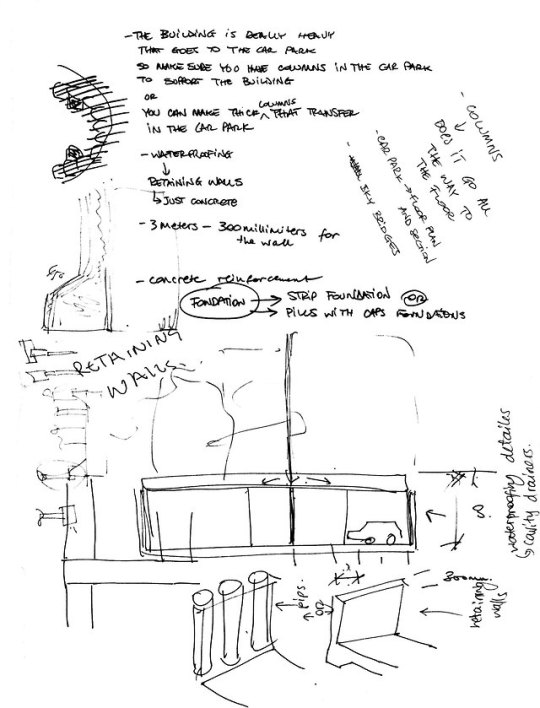 - THE BUILDING IS REALLY HEAVY
THAT GOES TO THE CAR PARK
SO MAKE SURE YOU HAVE COLUMNS IN THE CAR PARK
TO SUPPORT THE BUILDING
OR
YOU CAN MAKE THICK COLUMNS THAT TRANSFER
IN THE CAR PARK
- WATERPROOFING
↓
RETAINING WALLS
↳ JUST CONCRETE
- 3 METERS - 300 millimiters for
the wall
- concrete reinforcement
FONDATION → STRIP FOUNDATION OR
→ PILLS WITH CAPS FOUNDATIONS
- COLUMNS
↓
DOES IT GO ALL
THE WAY TO
THE FLOOR
- CAR PARK → FLOOR PLAN
AND SECTION
- SKY BRIDGES
RETAINING
WALLS.
waterproofing detailes
↳ cavity drainers.
8
pips
OR
300mm
retaining
walls